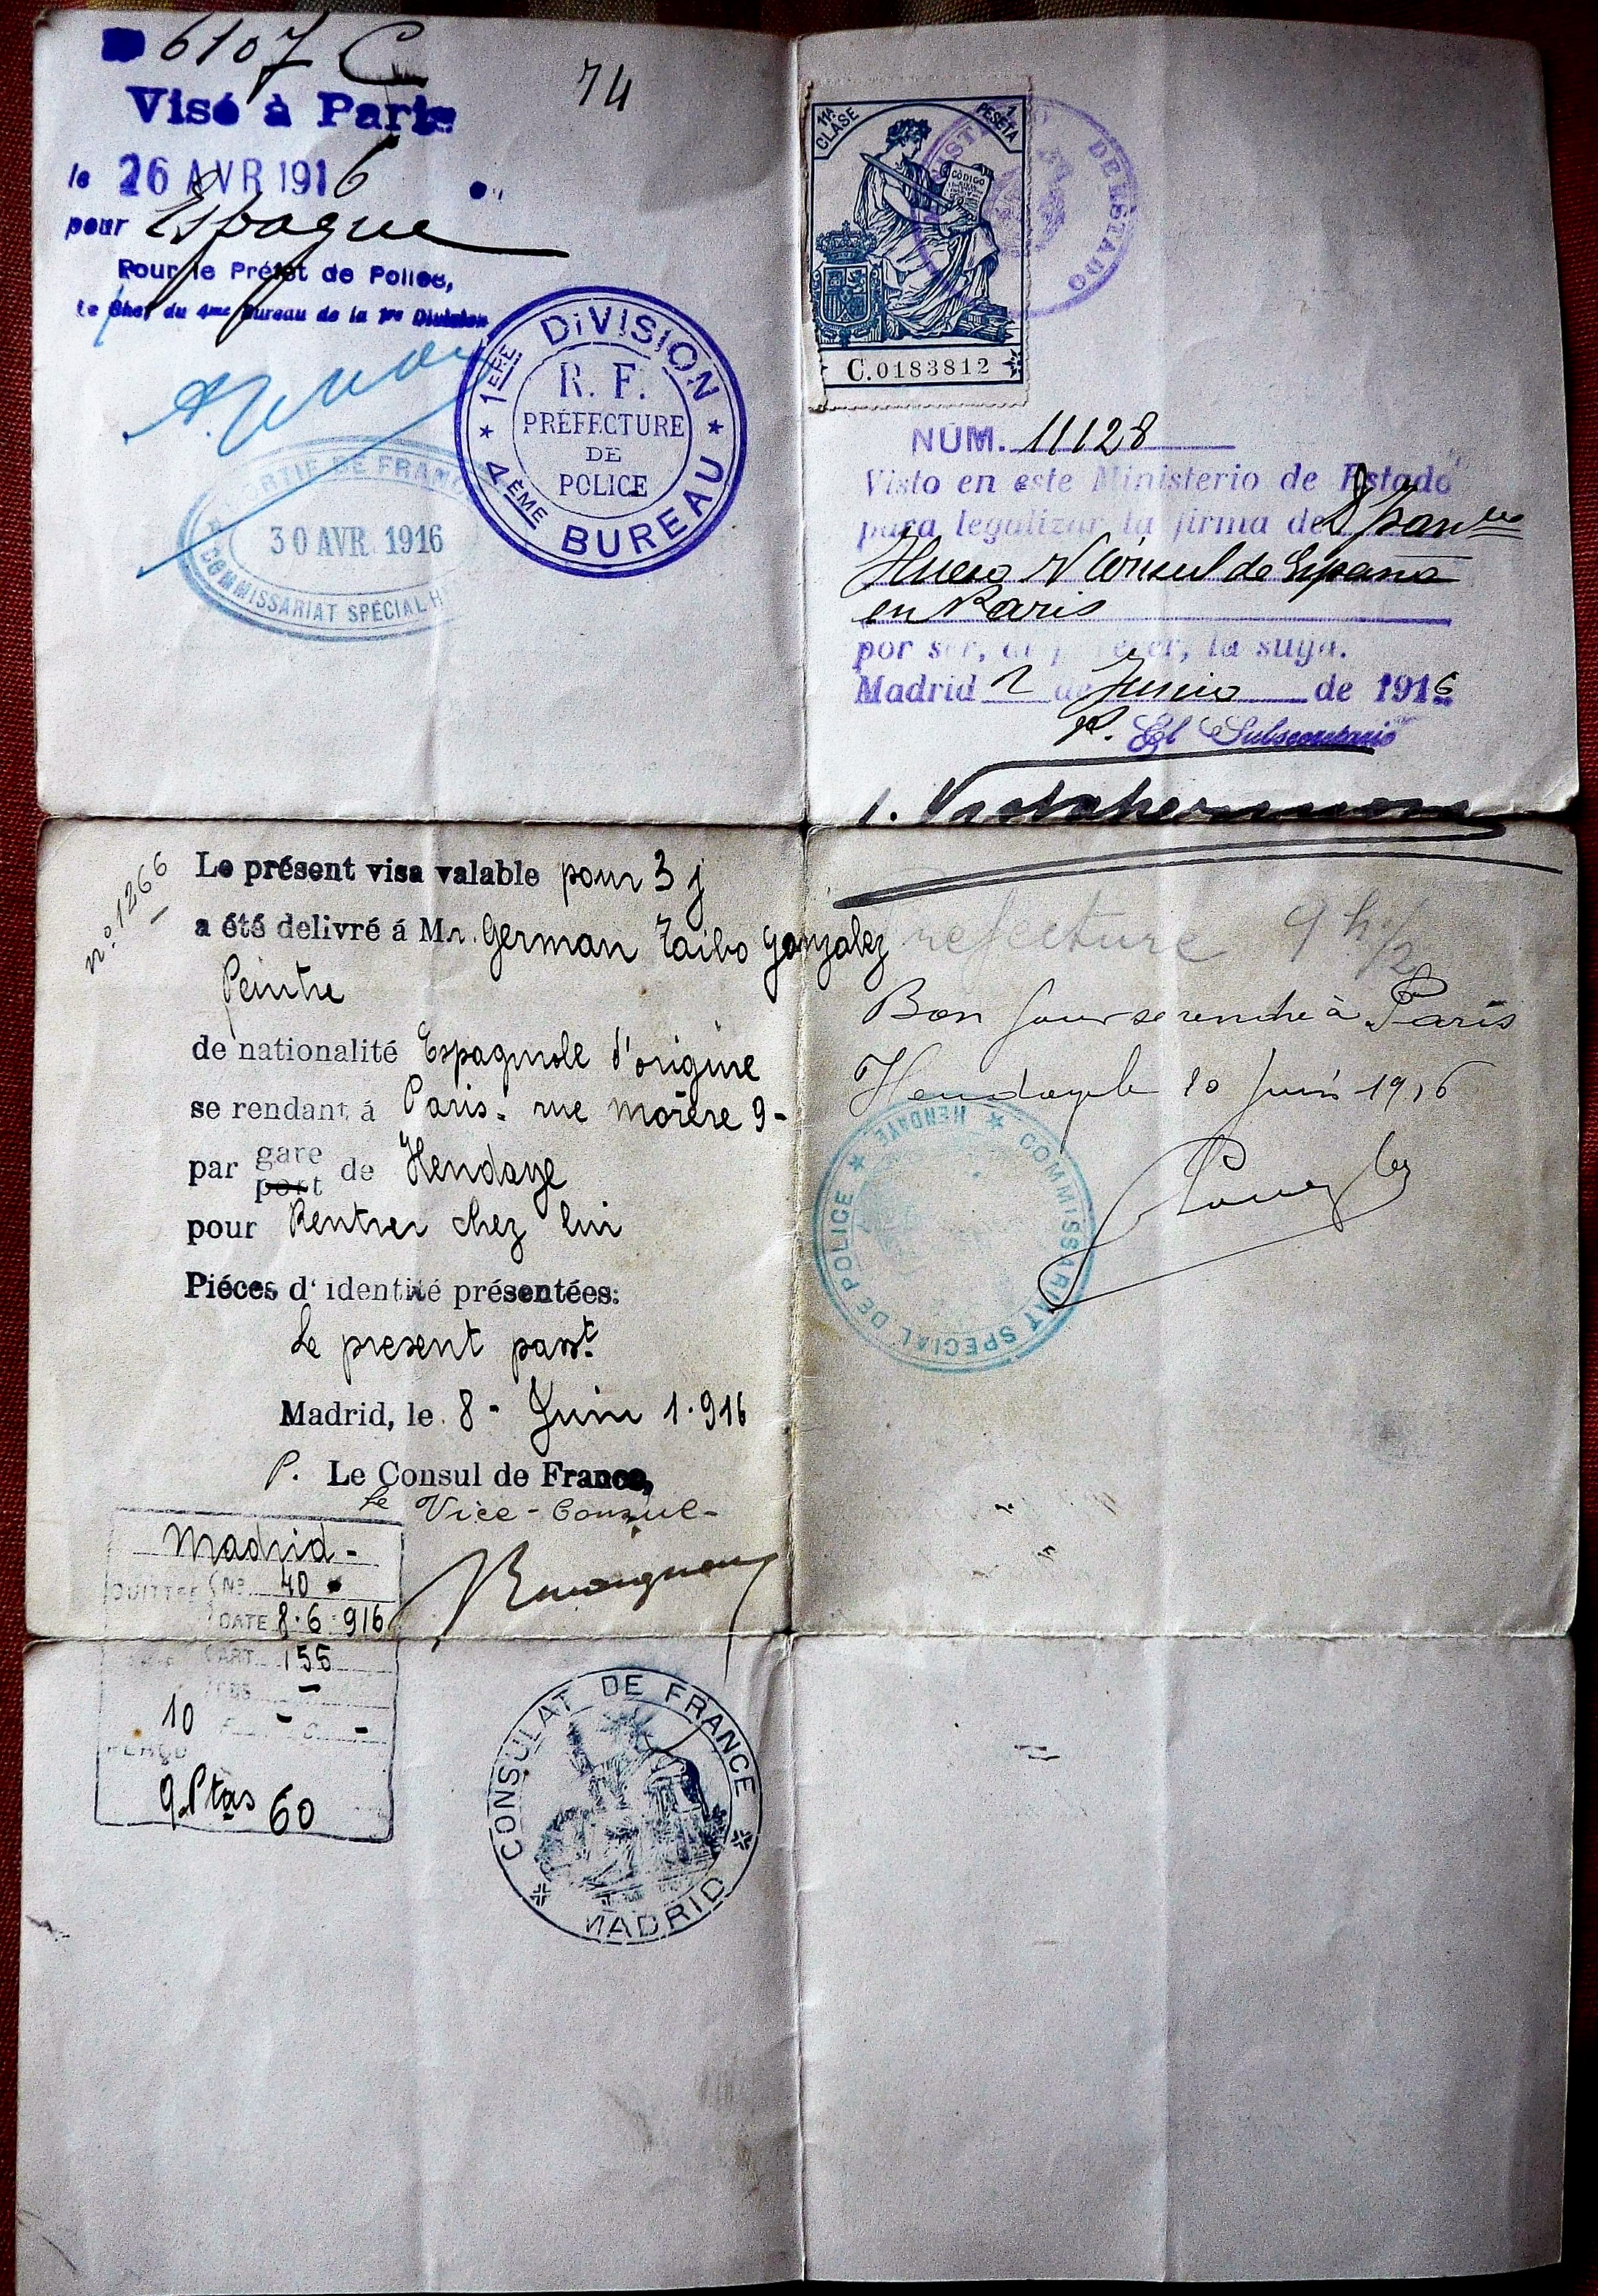 6107 C
74
Visé à Paris
le 26 AVR 1916
pour Espagne
Pour le Préfet de Police,
Le Chef du 4me Bureau de la 1re Division
1ÈRE DIVISION
R. F.
PRÉFECTURE
DE
POLICE
4ÈME BUREAU
SORTIE DE FRANCE
30 AVR. 1916
COMMISSARIAT SPÉCIAL
11A CLASE
1 PESETA
CÓDIGO
C.0183812
DE ESTADO
NÚM. 11128
Visto en este Ministerio de Estado
para legalizar la firma de D Fran co
V Cónsul de España
en Paris
por ser, al parecer, la suya.
Madrid 2 de Junio de 1916
P. El Subsecretario
nº 1266
Le présent visa valable pour 3 j
a été delivré á Mr. German Taibo Gonzalez
Peintre
de nationalité Espagnole d'origine
se rendant á Paris - rue morère 9-
par gare port de Hendaye
pour Rentrer chez lui
Piéces d'identité présentées:
Le present passt
Madrid, le 8 - Juin 1.916
P. Le Consul de France,
Le Vice-Consul-
Madrid -
QUITTCE Nº 40
DATE 8.6.916
ART. 155
10
F C
PERÇU
9 Ptas 60
CONSULAT DE FRANCE
MADRID
Prefecture 9 h 1/2
Bon pour se rendre à Paris
Hendaye le 10 Juin 1916
COMMISSARIAT SPECIAL DE POLICE
HENDAYE